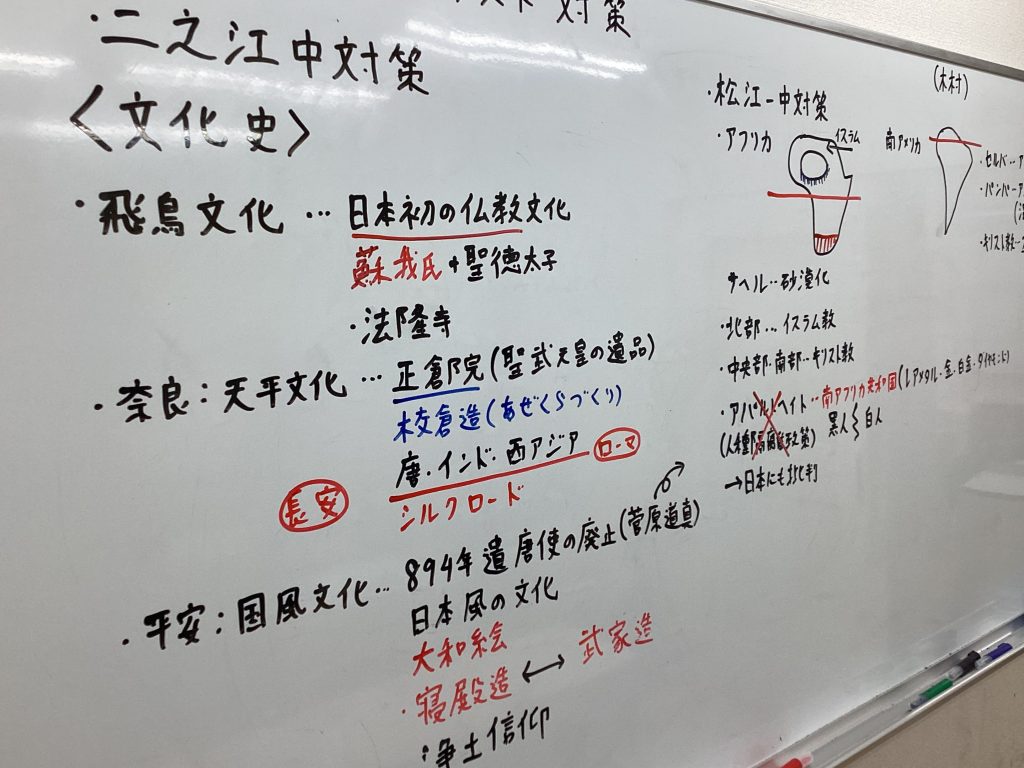 スト対策
・二之江中対策
〈文化史〉
・飛鳥文化…日本初の仏教文化
蘇我氏+聖徳太子
・法隆寺
・奈良：天平文化…正倉院(聖武天皇の遺品)
校倉造(あぜくらづくり)
唐・インド・西アジア ローマ
長安 シルクロード
・平安：国風文化…894年遣唐使の廃止(菅原道真)
日本風の文化
大和絵
・寝殿造↔武家造
・浄土信仰
(木村)
・松江一中対策
・アフリカ
イスラム
サヘル…砂漠化
・北部…イスラム教
・中央部・南部…キリスト教
・アパルトヘイト…南アフリカ共和国(レアメタル・金・白金・ダイヤモンド)
(人種隔離政策) 黒人 白人
→日本にも批判
南アメリカ
・セルバ…ア
・パンパ…ア
・キリスト教